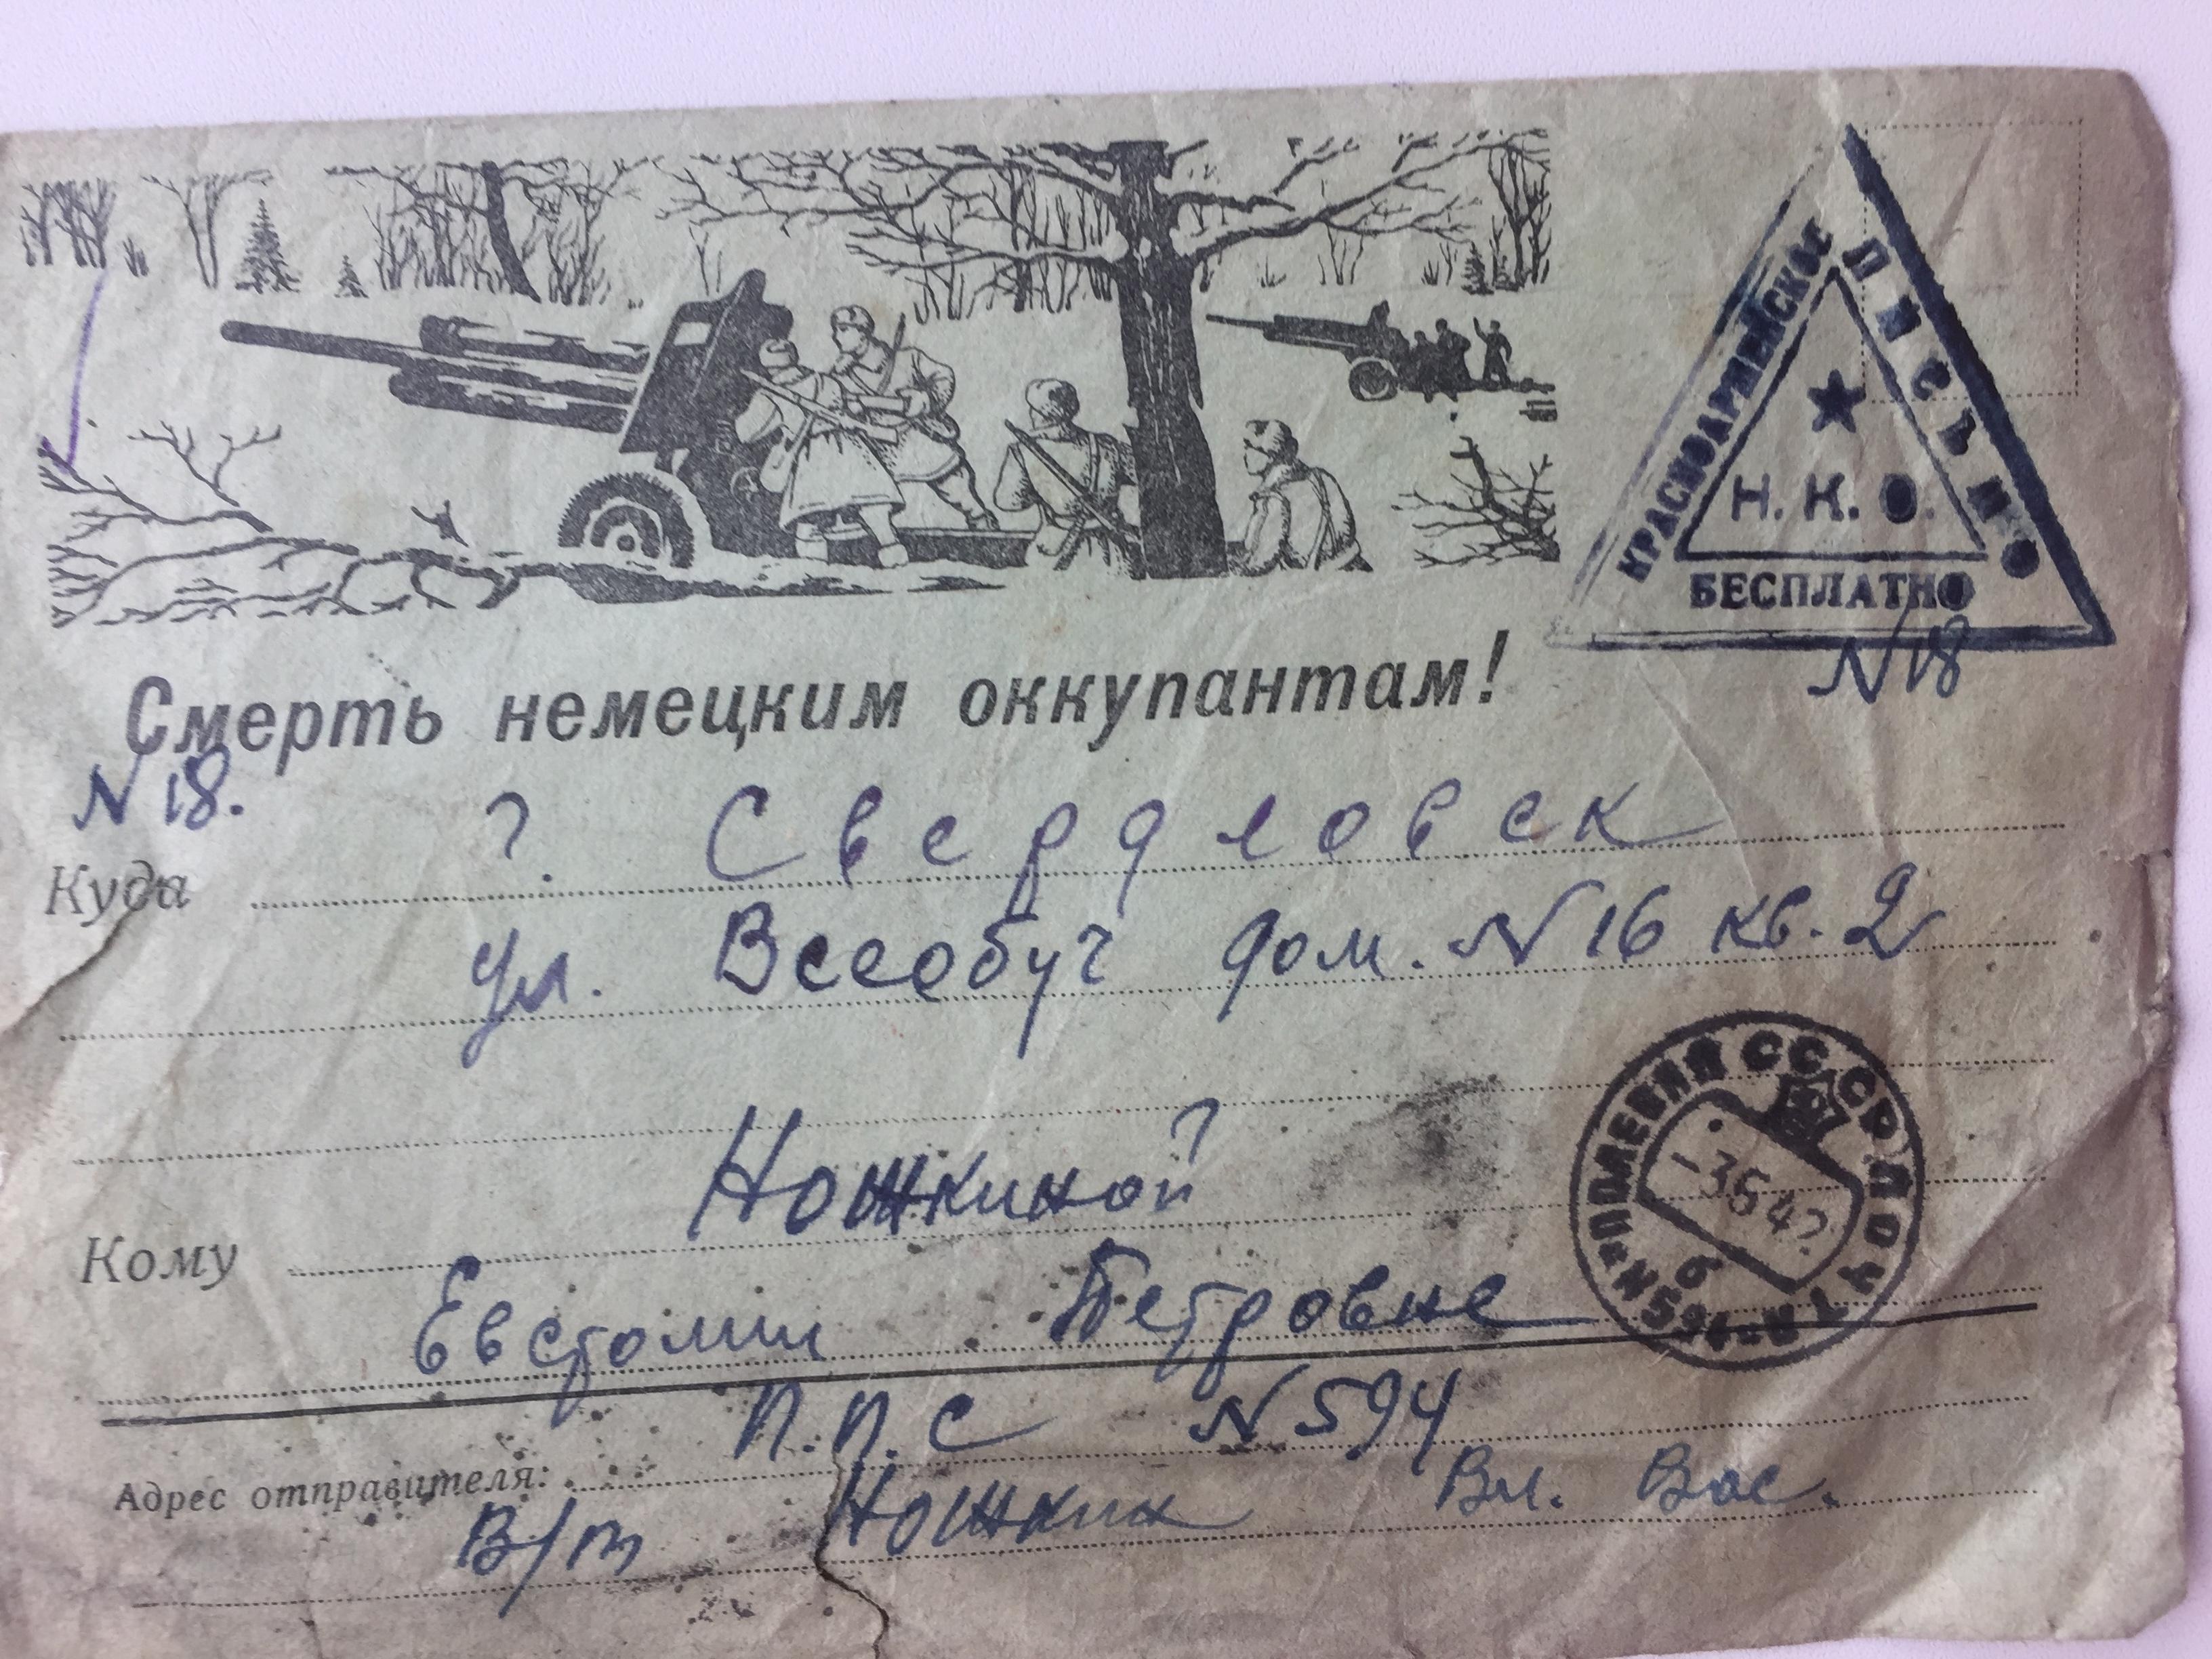 КРАСНОАРМЕЙСКОЕ ПИСЬМО
Н. К. О.
БЕСПЛАТНО
N 18
Смерть немецким оккупантам!
N 18.
Куда г. Свердловск
ул. Всеобуч дом. N 16 кв. 2
Кому Ножкиной
Евстолии Петровне
ПОЛЕВАЯ СССР ПОЧТА
-3 6 42
б
Адрес отправителя: П.П.С N 594
В/т Ножкин Вл. Вас.